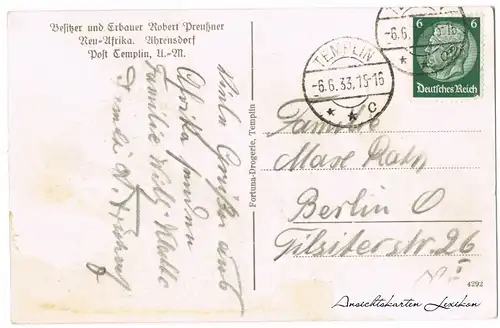 Besitzer und Erbauer Robert Preußner
Neu-Afrika. Ahrensdorf
Post Templin, U.-M.
Viele Grüße aus
Afrika senden
Familie
Familie
Fortuna-Drogerie, Templin
TEMPLIN
-6.6.33.15-16
* * c
-6.6.
6 6
Deutsches Reich
Familie
Max
Berlin O
Tilsiterstr 26
4292
Ansichtskarten Lexikon